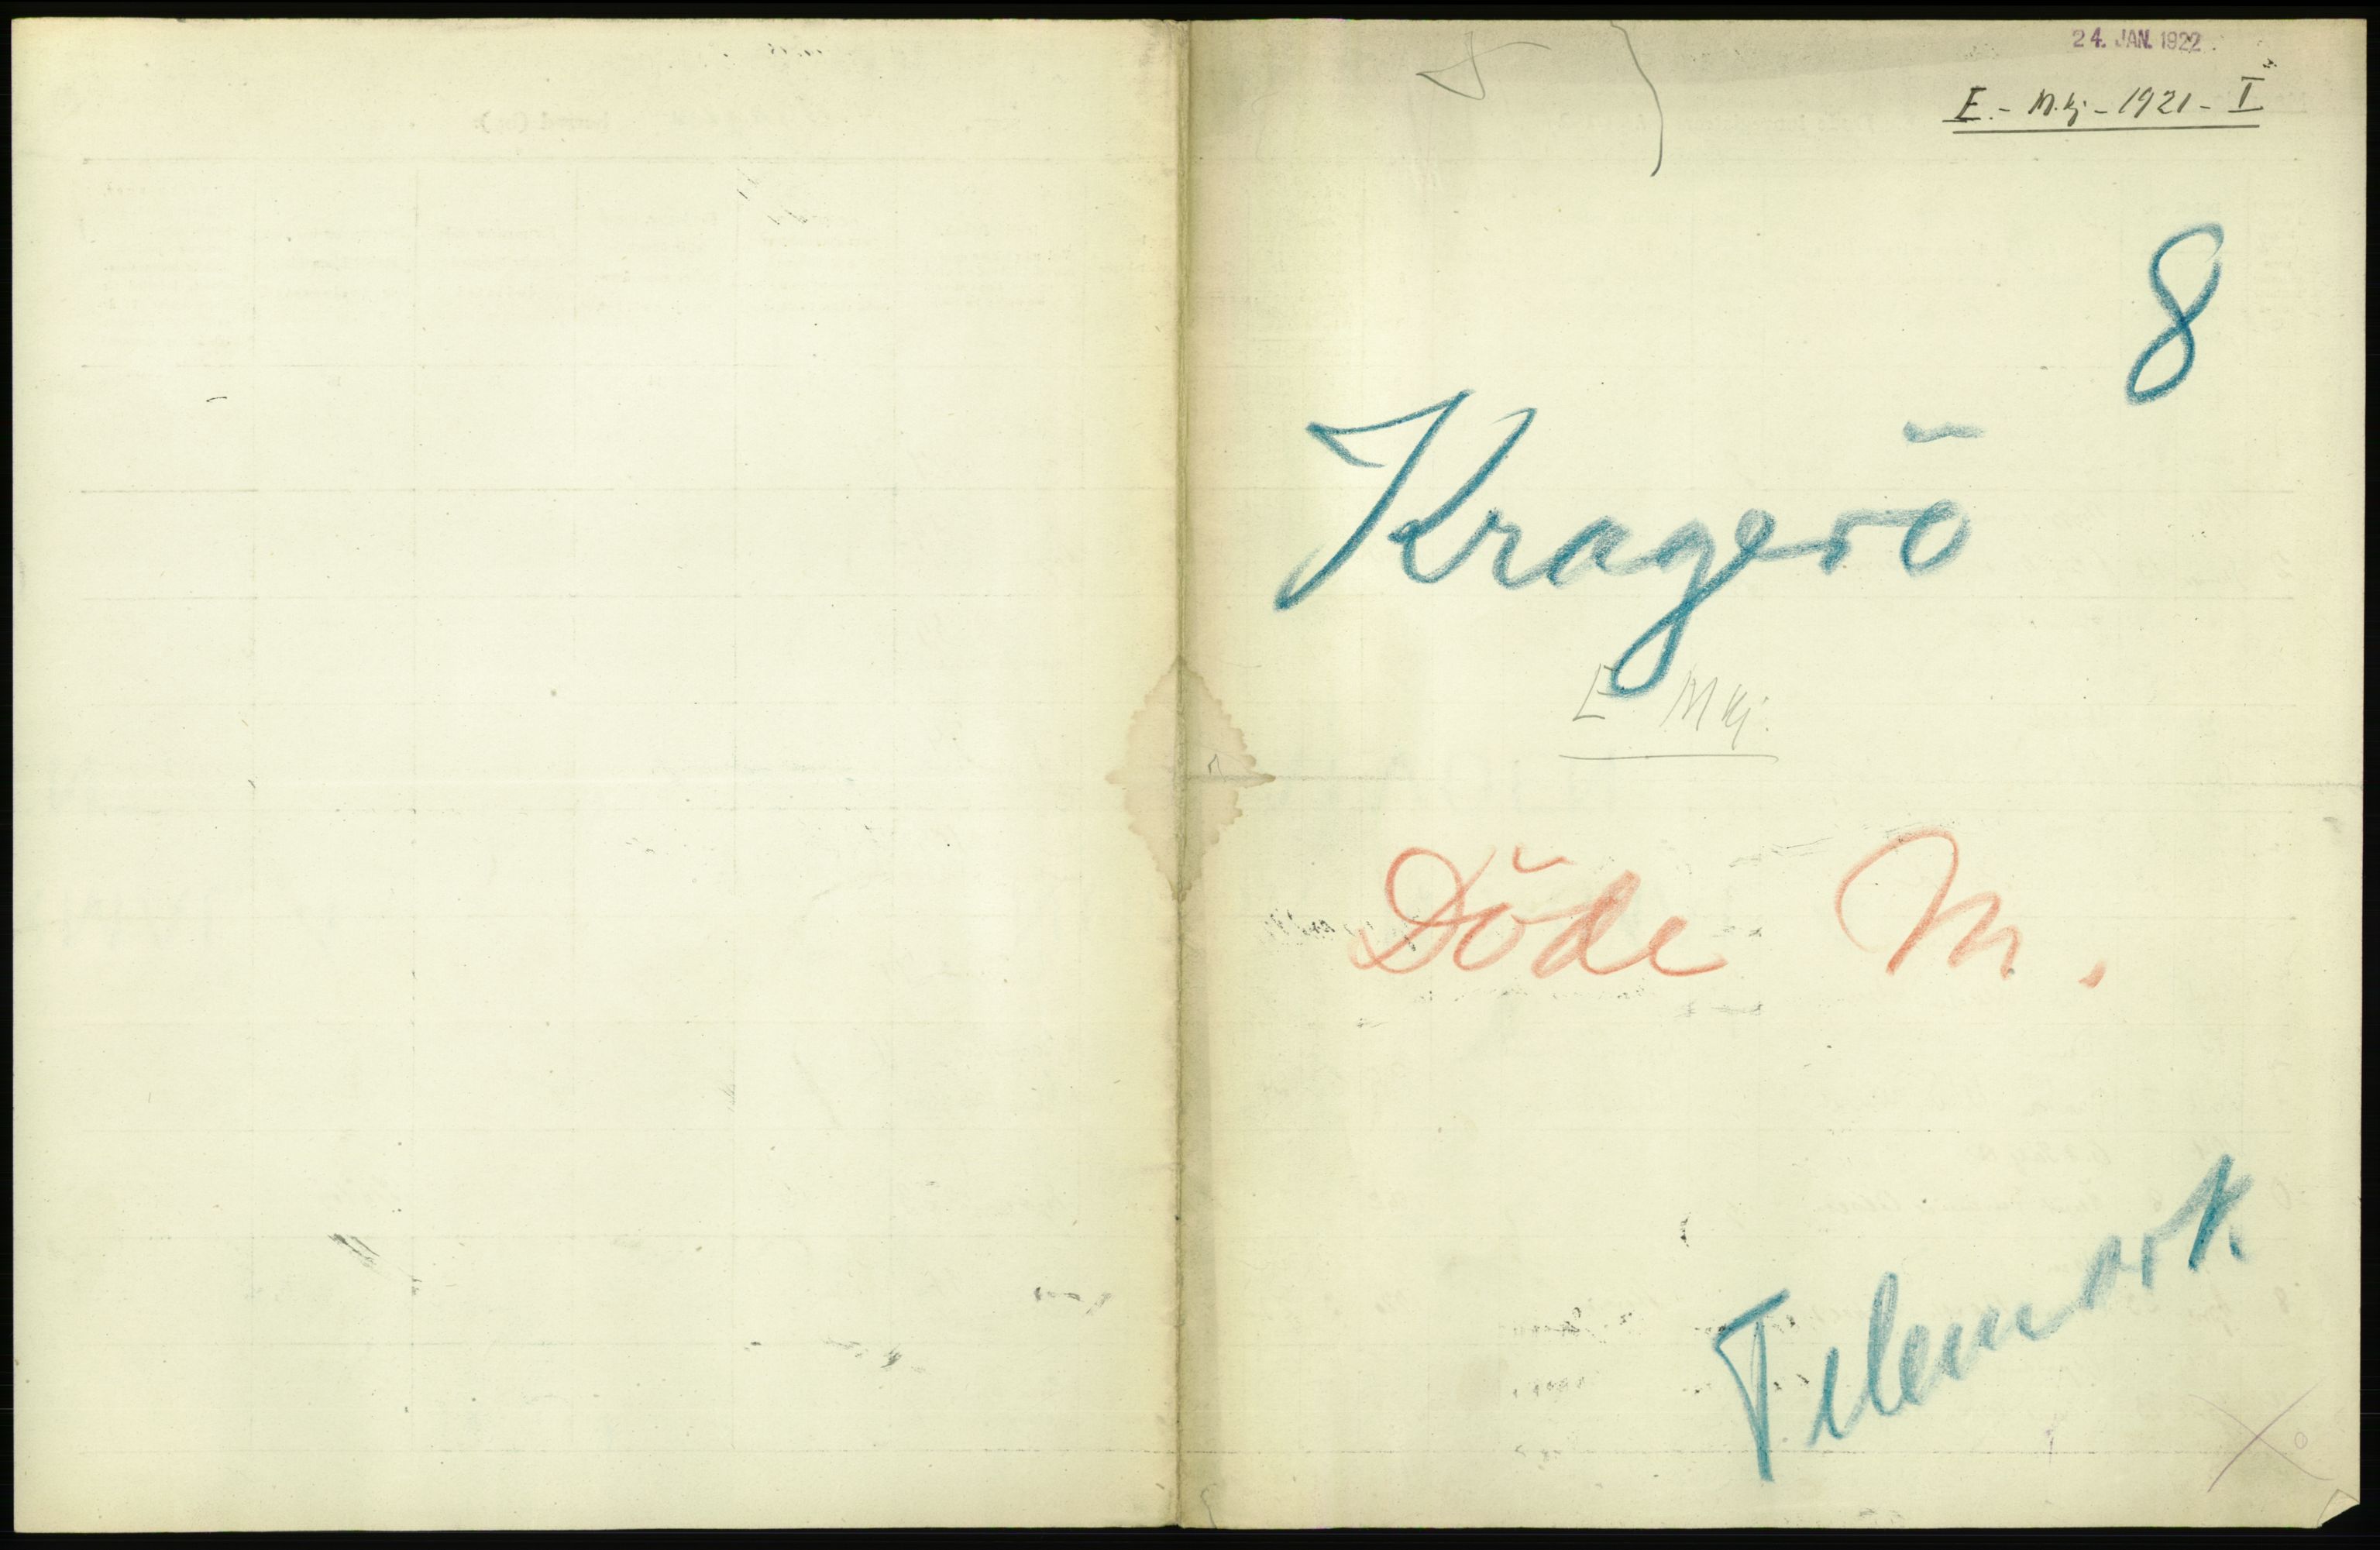 24. JAN. 1922
E. - M.kj - 1921 - I
8
Kragerö
E M kj.
Döde M.
Telemark